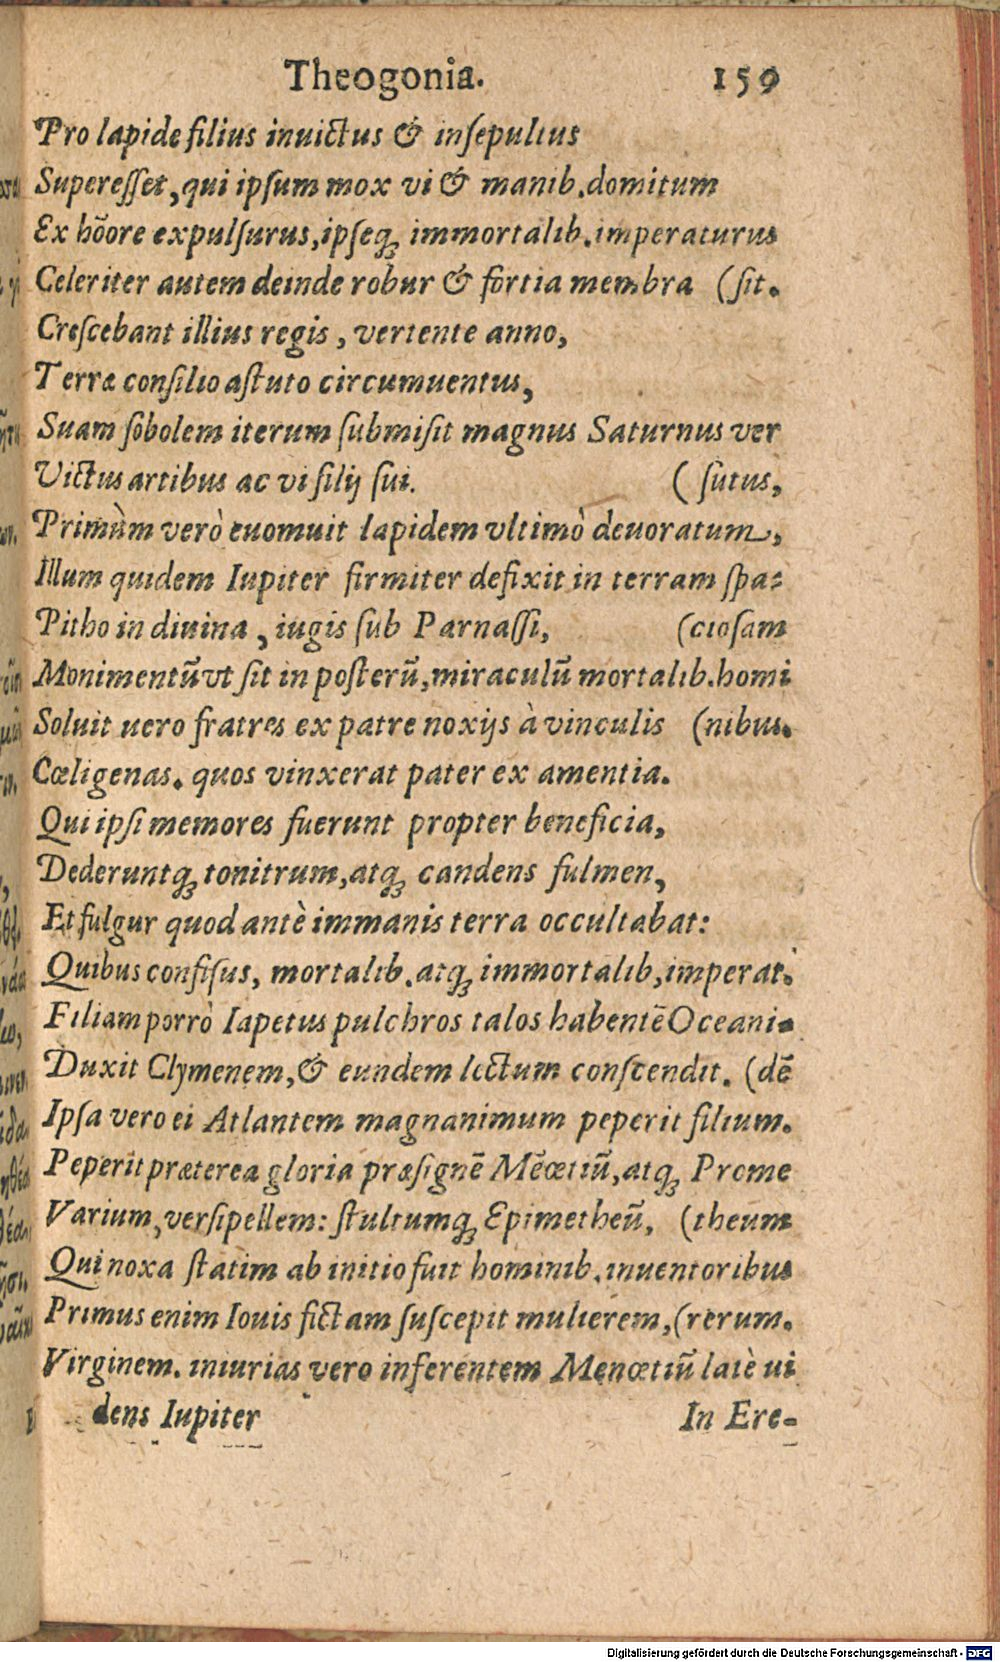 Theogonia. 159
Pro lapide filius inuictus & insepultus
Superesset, qui ipsum mox vi & manib. domitum
Ex hõore expulsurus, ipseq; immortalib. imperaturus
Celeriter autem deinde robur & fortia membra (sit.
Crescebant illius regis, vertente anno,
Terræ consilio astuto circumuentus,
Suam sobolem iterum submisit magnus Saturnus ver
Victus artibus ac vi filij sui. (sutus,
Primùm verò euomuit lapidem vltimò deuoratum,
Illum quidem Iupiter firmiter defixit in terram spa-
Pitho in diuina, iugis sub Parnassi, (ciosam
Monimentũ vt sit in posterũ, miraculũ mortalib. homi
Soluit uero fratres ex patre noxijs à vinculis (nibus.
Cœligenas. quos vinxerat pater ex amentia.
Qui ipsi memores fuerunt propter beneficia,
Dederuntq; tonitrum, atq; candens fulmen,
Et fulgur quod antè immanis terra occultabat:
Quibus confisus, mortalib. atq; immortalib, imperat.
Filiam porrò Iapetus pulchros talos habentẽ Oceani-
Duxit Clymenem, & eundem lectum conscendit. (dẽ
Ipsa vero ei Atlantem magnanimum peperit filium.
Peperit præterea gloria præsignẽ Mẽœtiũ, atq; Prome
Varium, versipellem: stultumq; Epimetheũ, (theum
Qui noxa statim ab initio fuit hominib. inuentoribus
Primus enim Iouis fictam suscepit mulierem, (rerum.
Virginem. iniurias vero inferentem Menœtiũ latè ui
dens Iupiter In Ere-
Digitalisierung gefördert durch die Deutsche Forschungsgemeinschaft - DFG